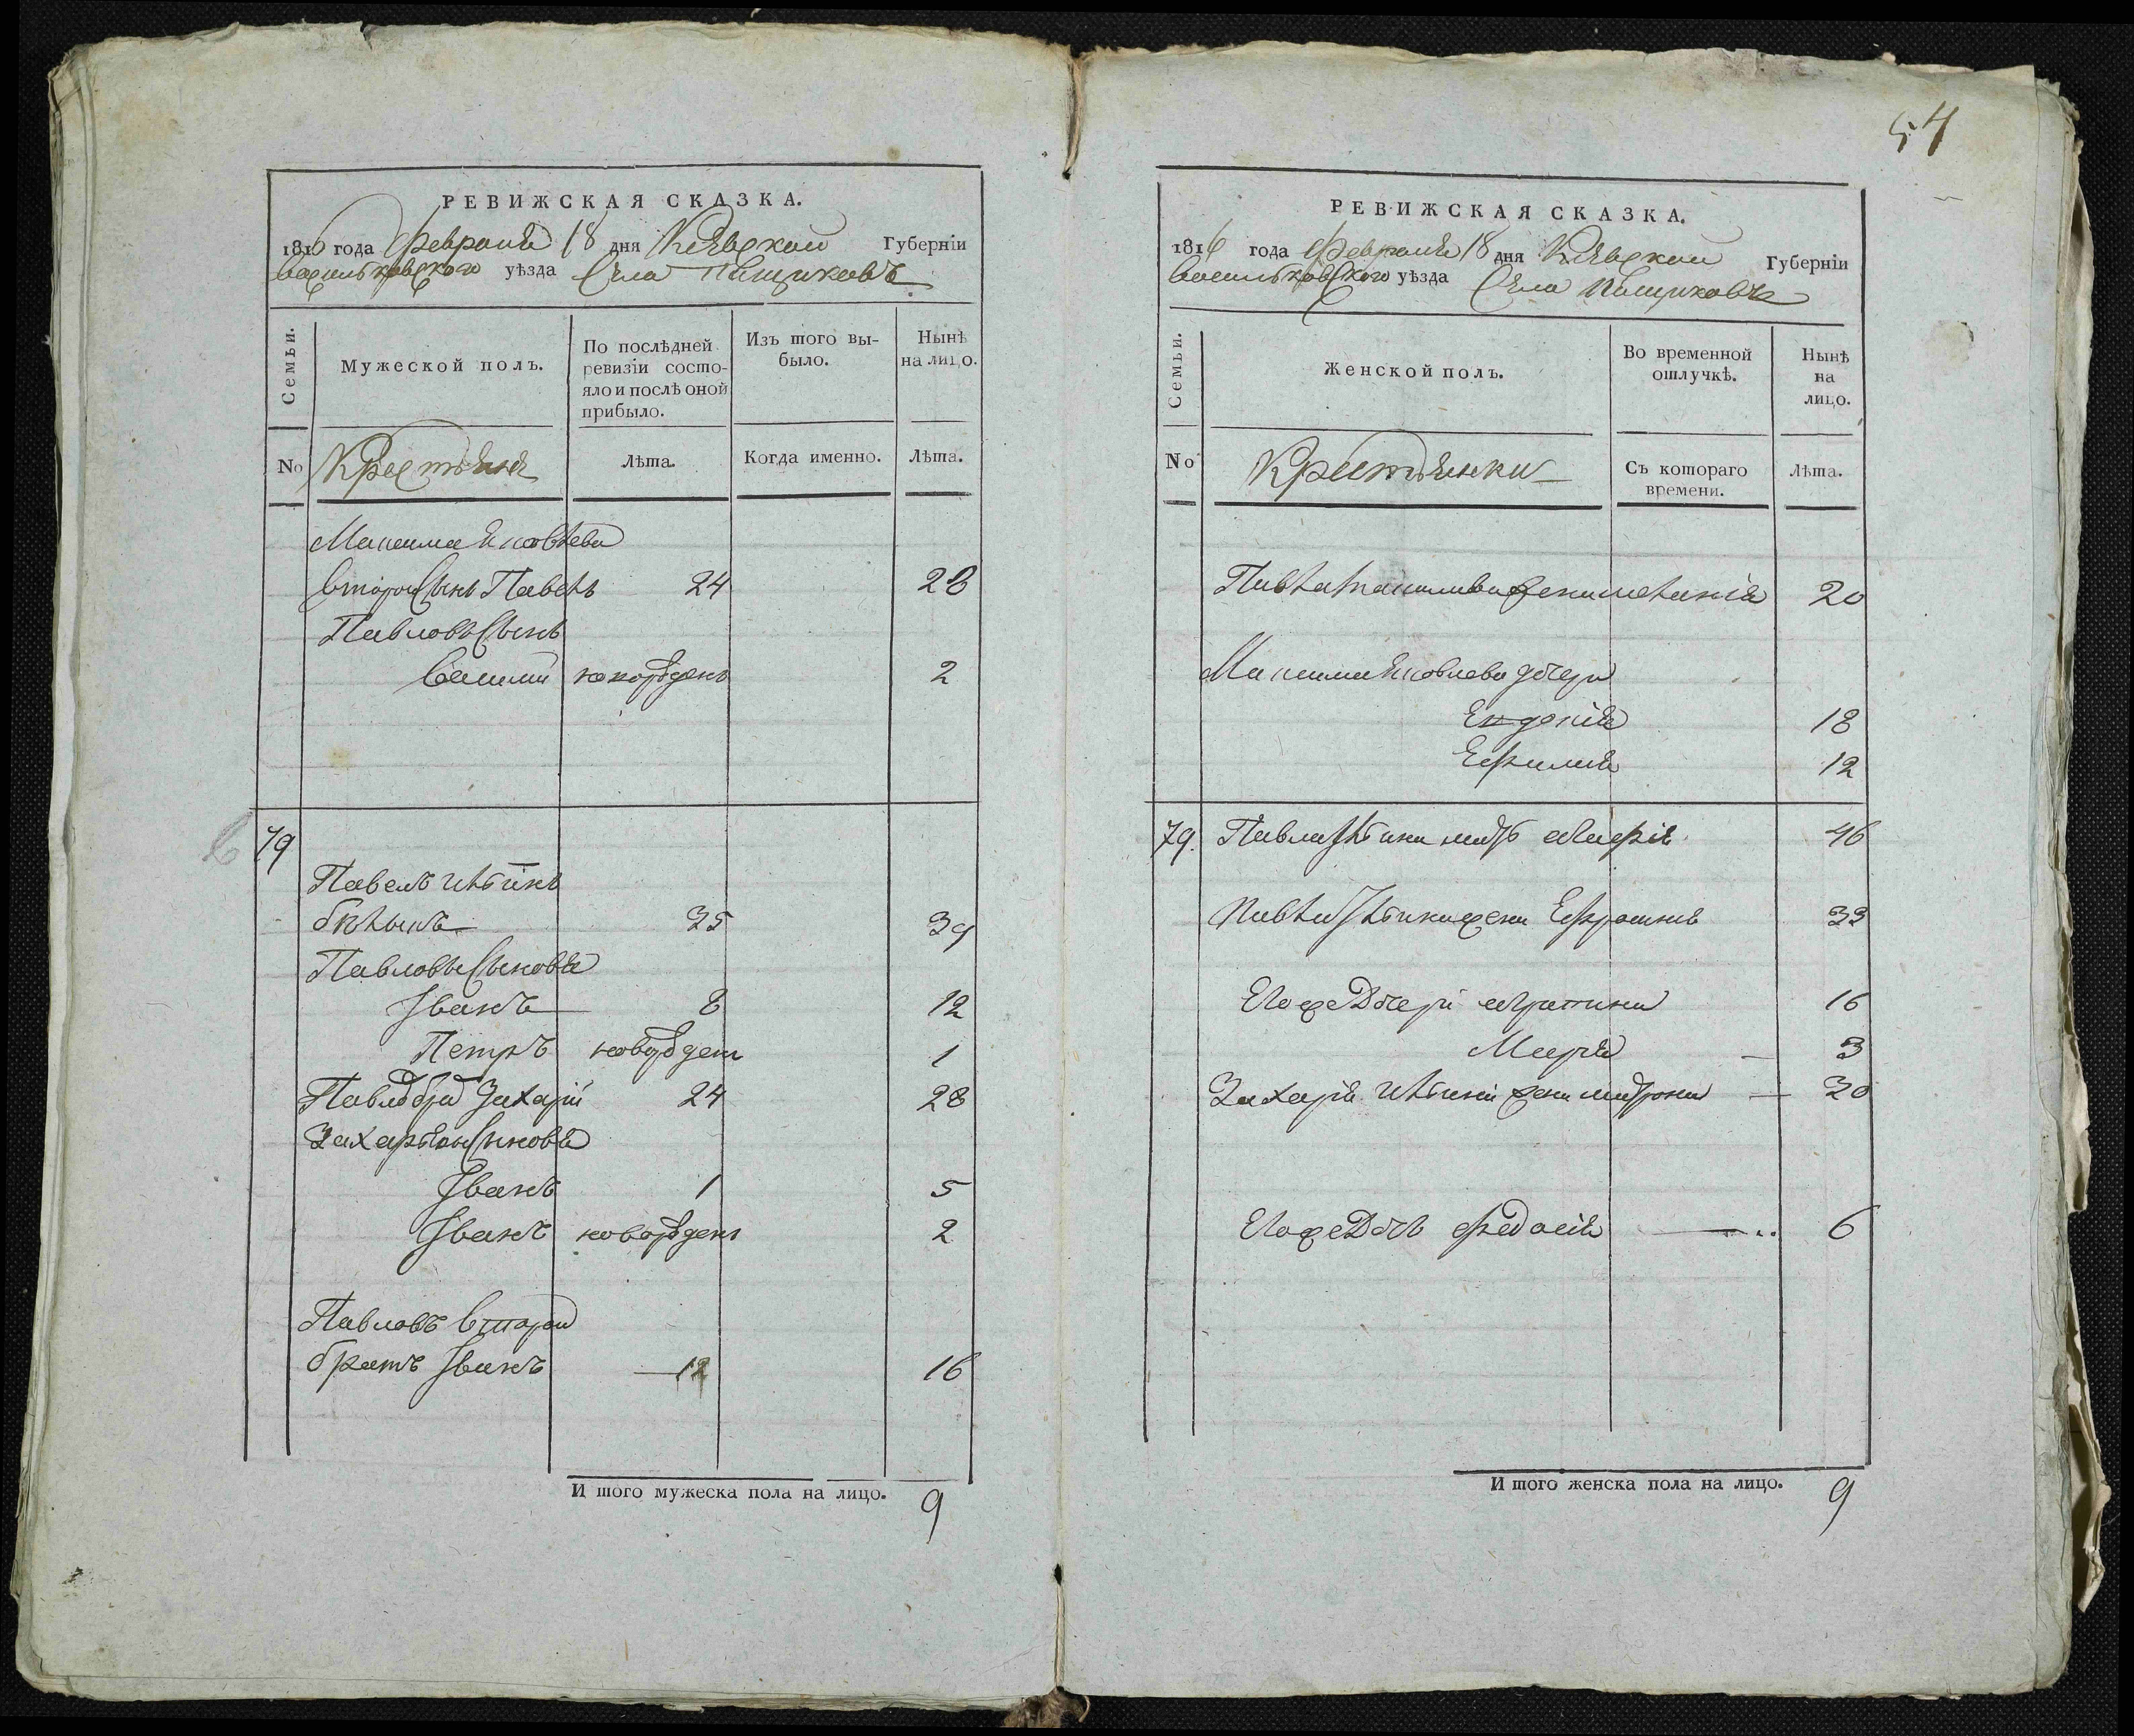 54
РЕВИЖСКАЯ СКАЗКА.
1816 года Февраля 18 дня Киевской Губерніи
Васильковского уѣзда Села Пѣщиковъ
Семьи.
Мужеской полъ.
По послѣдней ревизіи состояло и послѣ оной прибыло.
Изъ того выбыло.
Нынѣ на лицо.
No
Крестьяне
Лѣта.
Когда именно.
Лѣта.
Максима Яковлева
второй Сынъ Павелъ 24 28
Павловъ Сынъ
Василий новорожденъ 2
79
Павелъ
35 39
Павловы Сыновья
Іванъ 8 12
Петръ новорожден 1
Павлов брат Захарій 24 28
Захарьевы Сыновья
Іванъ 1 5
Іванъ новорожден 2
Павловъ второй
братъ Іванъ 12 16
И того мужеска пола на лицо. 9
РЕВИЖСКАЯ СКАЗКА.
1816 года Февраля 18 дня Киевской Губерніи
Васильковского уѣзда Села Пѣщиковъ
Семьи.
Женской полъ.
Во временной отлучкѣ.
Нынѣ на лицо.
No
Крестьянки
Съ котораго времени.
Лѣта.
Павла Максимова жена 20
Максима Яковлева дочери
18
Ефимия 12
79. Павла мать 46
Павла жена Ефросинья 33
Его же Дочери 16
Мария 3
Захария жена Матрона 30
Его же Дочь Федосия 6
И того женска пола на лицо. 9